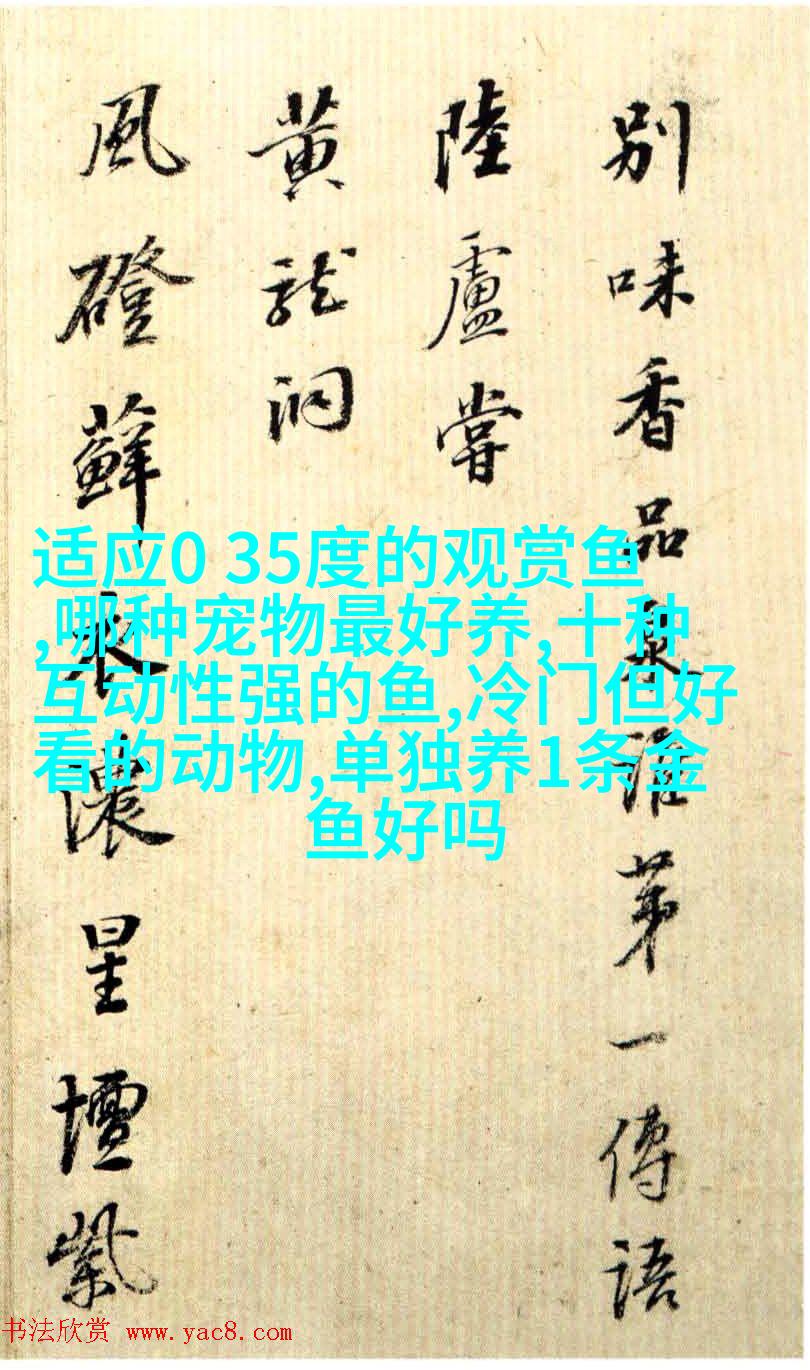 别味香品泉谁第一傳語
陸盧嘗
黄龍洞
風磴蘚衣濃星壇紫
适应0 35度的观赏鱼
,哪种宠物最好养,十种
互动性强的鱼,冷门但好
看的动物,单独养1条金
鱼好吗
书法欣赏 www.yac8.com